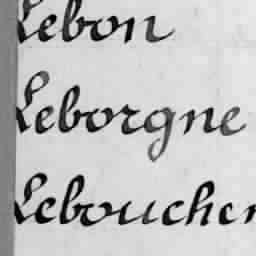 Lebon
Leborgne
Leboucher